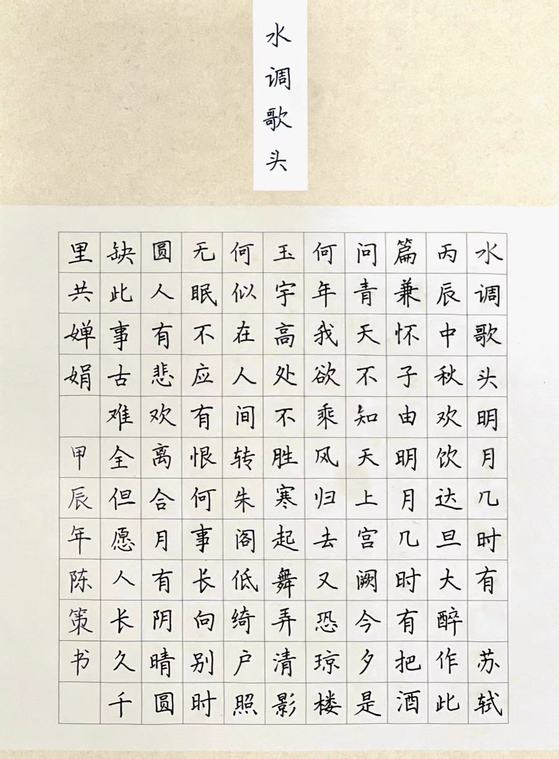 水调歌头
水调歌头明月几时有 苏轼
丙辰中秋欢饮达旦大醉作此
篇兼怀子由明月几时有把酒
问青天不知天上宫阙今夕是
何年我欲乘风归去又恐琼楼
玉宇高处不胜寒起舞弄清影
何似在人间转朱阁低绮户照
无眠不应有恨何事长向别时
圆人有悲欢离合月有阴晴圆
缺此事古难全但愿人长久千
里共婵娟 甲辰年陈策书